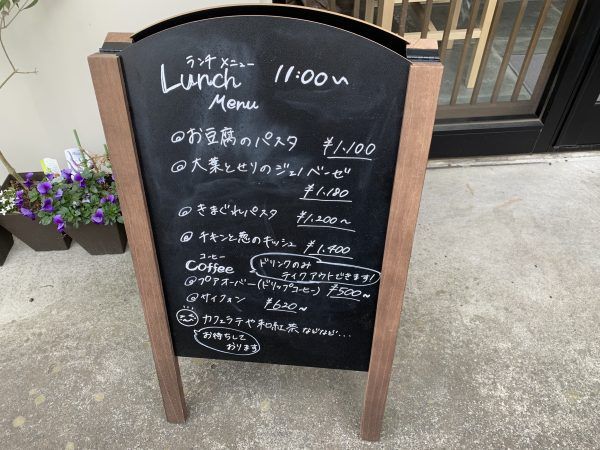 ランチメニュー
Lunch 11:00〜
Menu
◎お豆腐のパスタ ¥1,100
◎大葉とせりのジェノベーゼ
¥1,180
◎きまぐれパスタ ¥1,200〜
◎チキンと葱のキッシュ ¥1,400
コーヒー
Coffee
ドリンクのみ
テイクアウトできます!
◎プアオーバー(ドリップコーヒー) ¥500〜
◎サイフォン ¥620〜
カフェラテや和紅茶などなど...
お待ちして
おります